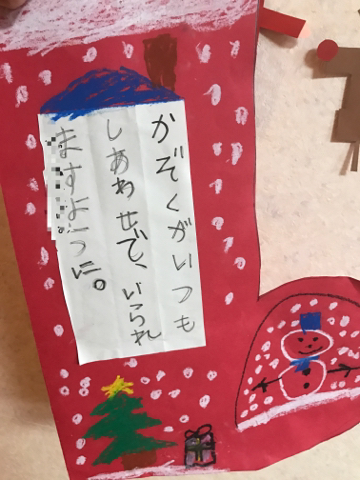 かぞくがいつも
しあわせで、いられ
ますように。